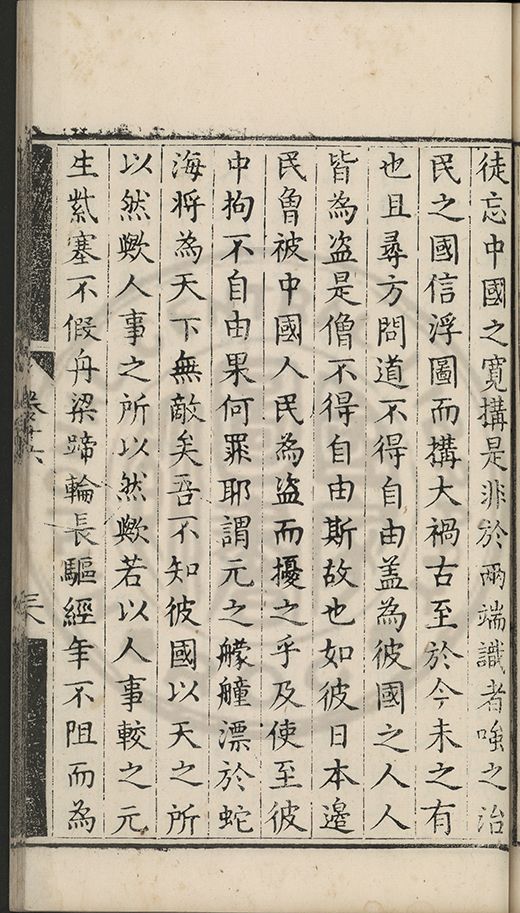 徒忘中國之寬搆是非於兩端識者嗤之治
民之國信浮圖而搆大禍古至於今未之有
也且尋方問道不得自由盖為彼國之人人
皆為盗是僧不得自由斯故也如彼日本邉
民魯被中國人民為盗而擾之乎及使至彼
中拘不自由果何罪耶謂元之艨艟漂於蛇
海将為天下無敵矣吾不知彼國以天之所
以然歟人事之所以然歟若以人事較之元
生紫塞不假舟梁蹄輪長驅經年不阻而為